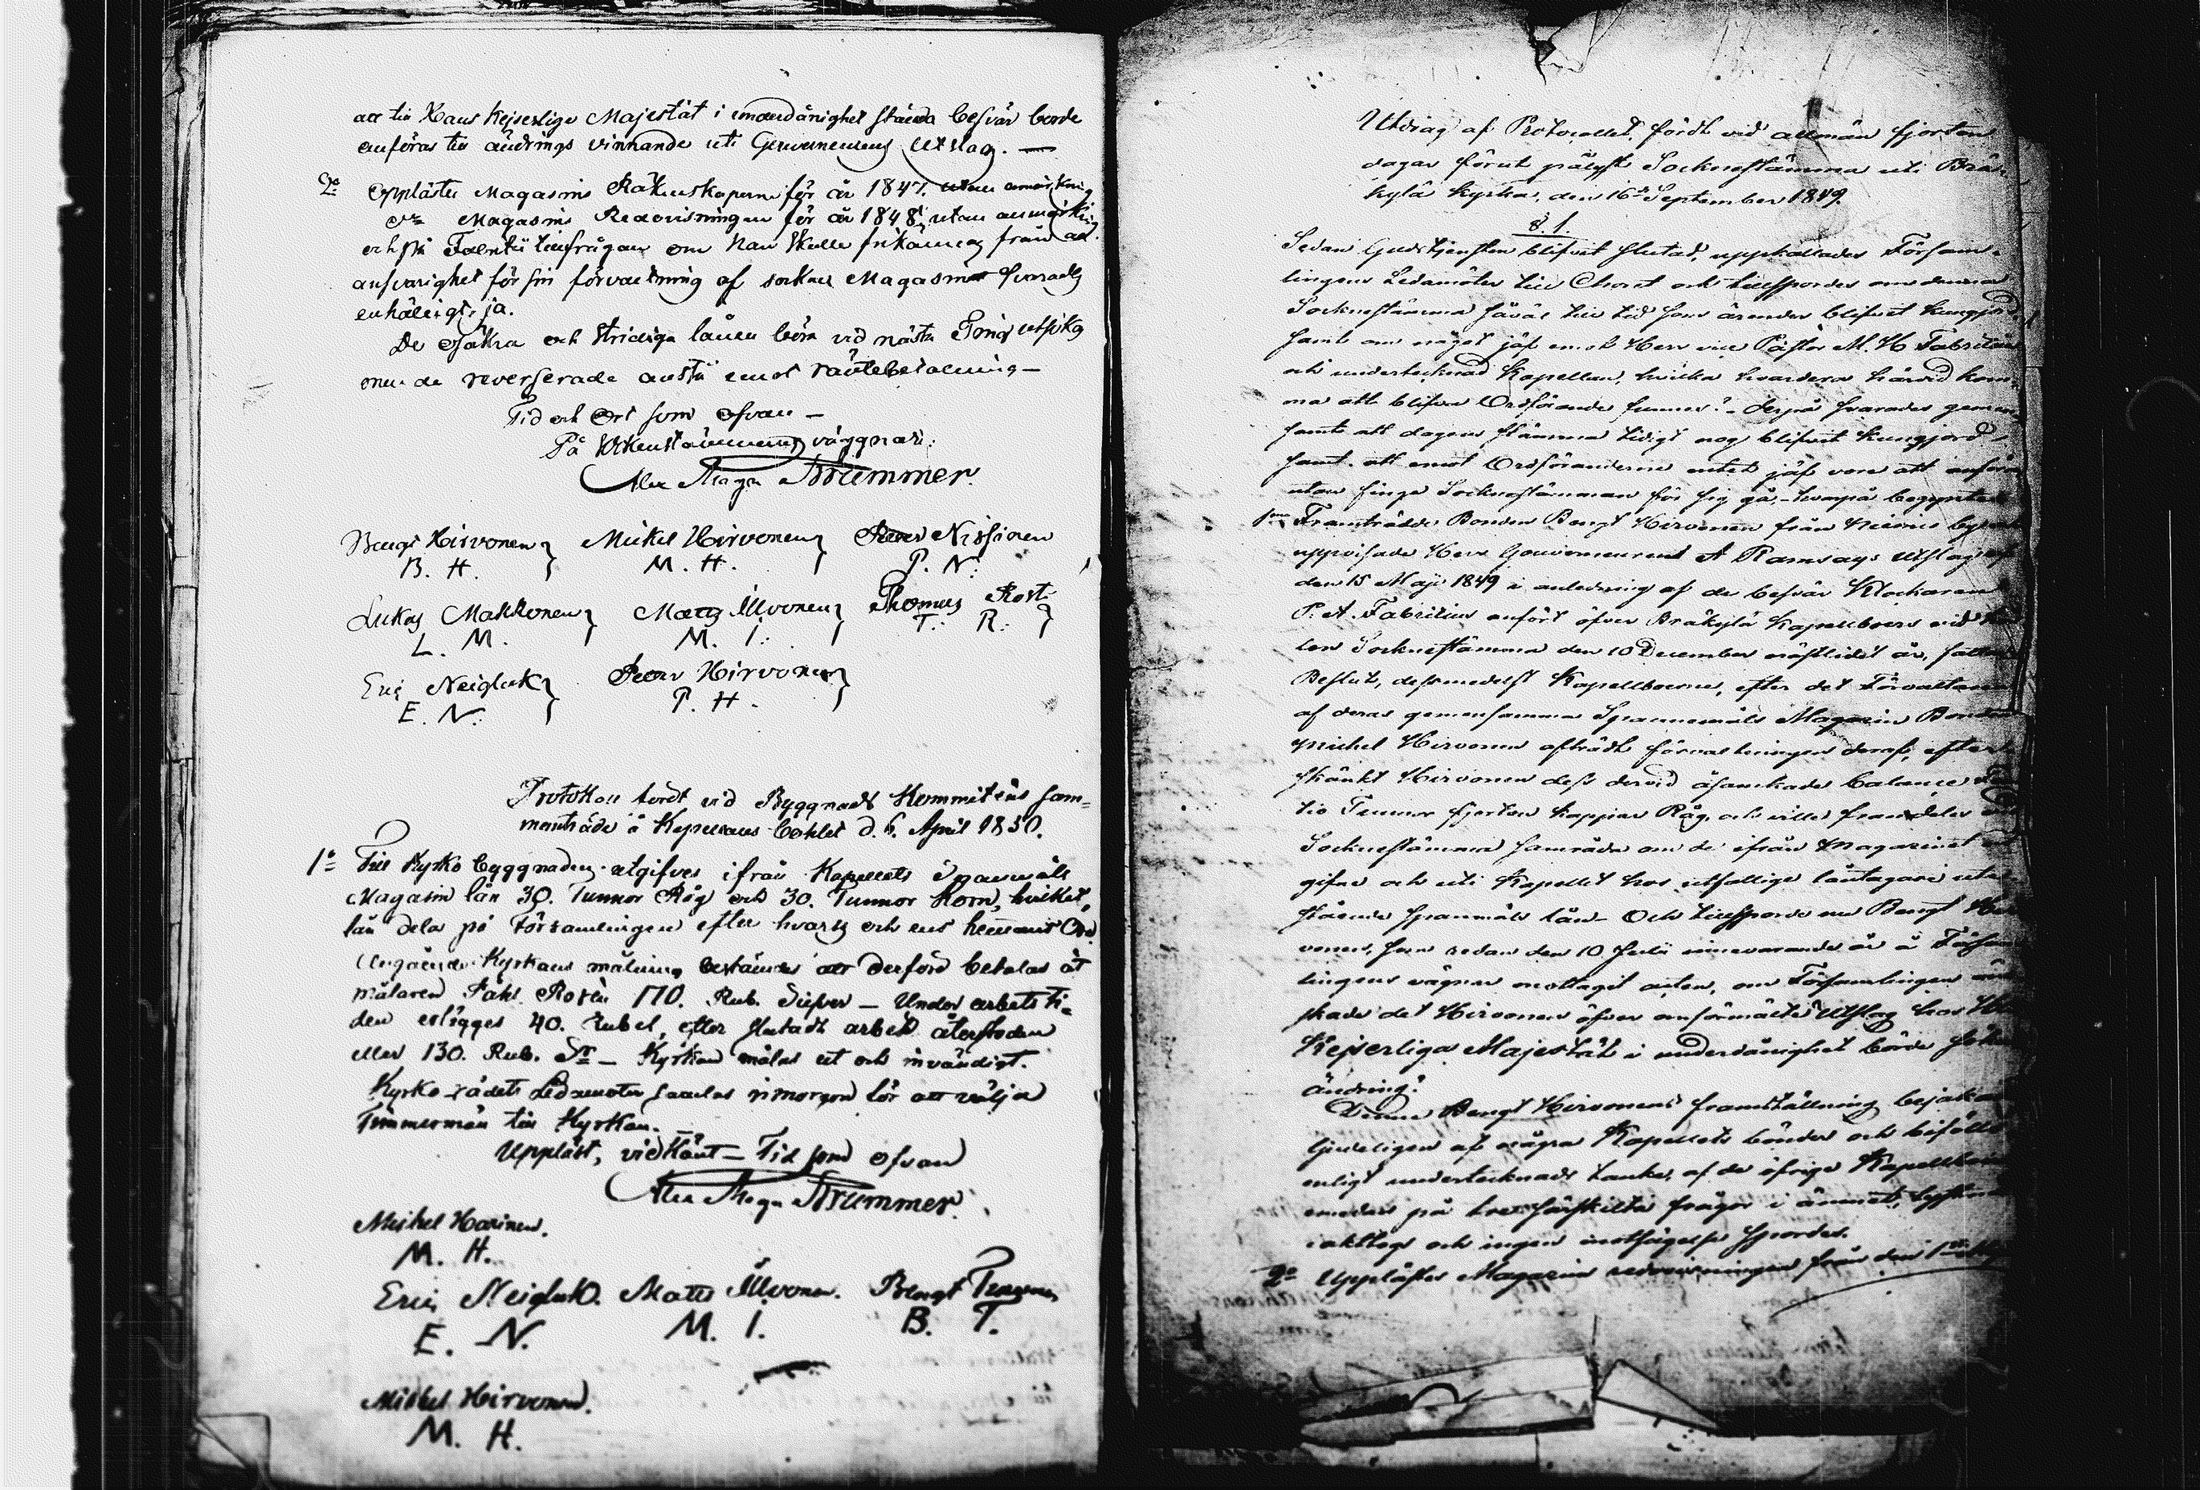 att till Hans Kejserliga Majestät i underdånighet ställda besvär borde
anföras till ändrings vinnande uti Gouverneurens Utslag. —
2o Upplästes Magasins Räkenskaperna för år 1847. utan anmärkning
do Magasins Redovisningen för år 1848, utan anmärkning
och på tillfrågan om han skulle frikännas från all
ansvarighet för sin förvaltning af socken Magasinet svarades
enhäligt, ja.
De osäkra och stridiga lånen böra vid nästa Ting utsökas
men de reverserade anstå emot räntebetalning —
Tid och Ort som ofvan —
På Sockenstämmans väggnar:
Alex Magn Brummer.
Bengt Hirvonen } Mickel Hirvonen } Petter Nissinen
B. H. M. H. P. N.
Lukas Makkonen } Matts Ilvonen } Thomas Rosti
L. M. M. I. T. R. }
Eric Neiglick } Petter Hirvonen }
E. N. P. H.
Protokoll fördt vid Byggnads Kommiténs sam=
manträde å Kapellans bohlet d. 6. April 1850.
1o Till Kyrko byggnaden utgifves ifrån Kapellets Spanmåls
Magasin lån 30. Tunnor Råg och 30. Tunnor Korn, hvilket
lån delas på Församlingen efter hvars och ens hemmans
Angående Kyrkans målning bestämdes att derföre betalas åt
målaren 170. Rub. Silfver — Under arbets ti=
den erlägges 40. Rubel, efter slutadt arbete återstoden
eller 130. Rub. Sr — Kyrkan målas ut och invändigt.
Kyrko rådets Ledamöter samlas i morgon för att välja
Timmermän till Kyrkan.
Uppläst, vidkänt — Tid som ofvan
Alex Magn Brummer.
Michel Harinen.
M. H.
Eric Neiglick. Matts Ilvonen. Bengt
E. N. M. I. B. T.
Mickel Hirvonen.
M. H.
Utdrag af Protocollet, fördt vid allmän fjorton
dagar förut pålyst Socknestämma uti Brä
kylä kyrka, den 16de September 1849.
§. 1.
Sedan Gudstjensten blifvit slutad, uppkallades Försam=
lingens Ledamöter till Choret och tillspordes om denna
Socknestämma såväl till tid som ärender blifvit kungjord
samt om något jäf emot Herr vice Pastor M. H. Fabritius
och undertecknad Kapellan, hvilka hvardera härvid kom=
ma att blifva Ordförande funnes? — derpå svarades gemen
samt att dagens stämma tidigt nog blifvit kungjord,
samt att emot Ordföranderne intet jäf vore att anföra
utan finge Socknestämman för sig gå, — hvarpå begyntes
1mo Framträdde Bonden Bengt Hirvonen från by
uppvisade Herr Gouverneurens A Ramsays Utslag af
den 15 Maji 1849 i anledning af de besvär Klockaren
P. A. Fabritius anfört öfver Bräkylä Kapellboers vid
len Socknestämma den 10 December nästlidet år, fattade
Beslut, dessmedelst Kapellboerne, efter det Förvaltaren
af deras gemensamma Spannemåls Magasin Bonden
Michel Hirvonen afträdt förvaltningen deraf, efter
skänkt Hirvonen dess dervid åsamkade balance
tio Tunnor fjorton kappar Råg, och ville framdeles å
Socknestämma samråda om de ifrån Magasinet ut
gifne och uti Kapellet hos utfattige låntagare ute
stående spanmåls lån — Och tillsporde nu Bengt Hir
vonen, som redan den 10 Julii innevarande år å Försam
lingens vägnar emottagit acten, om Församlingen ön
skade det Hirvonen öfver omförmälte Utslag hos Hans
Kejserliga Majestät i underdånighet borde söka
ändring?
Denne Bengt Hirvonens framställning bejakades
ljudeligen af några Kapellets bönder och bifölls
enligt undertecknads tanke, af de öfrige Kapellboer
emedan på tre särskilta frågor i ämnet, tystnad
iakttogs och ingen motsägelse spordes.
2o Upplästes Magasins redovisningen från den 1ste